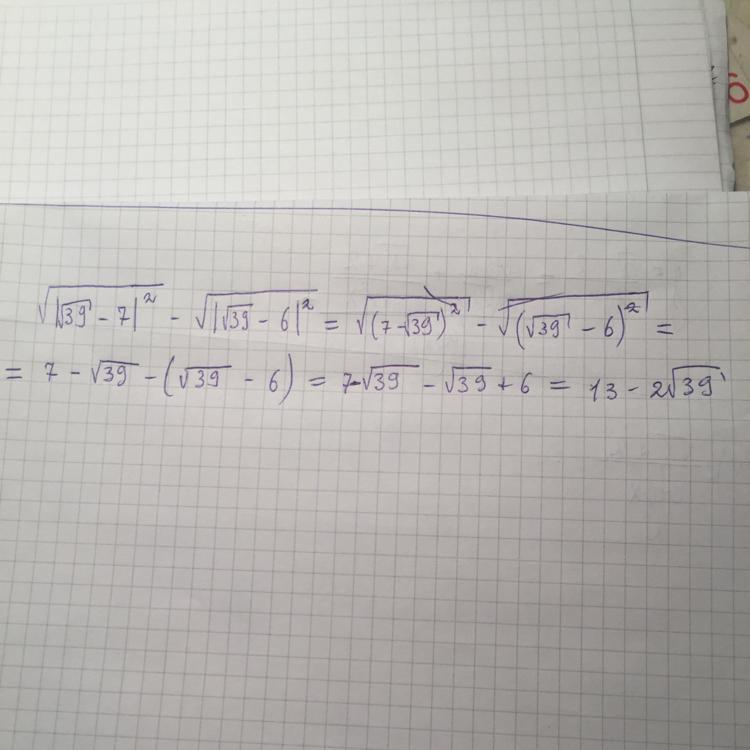 √|√39 - 7|² - √|√39 - 6|² = √(7-√39)² - √(√39 - 6)² =
= 7 - √39 - (√39 - 6) = 7-√39 - √39 + 6 = 13 - 2√39